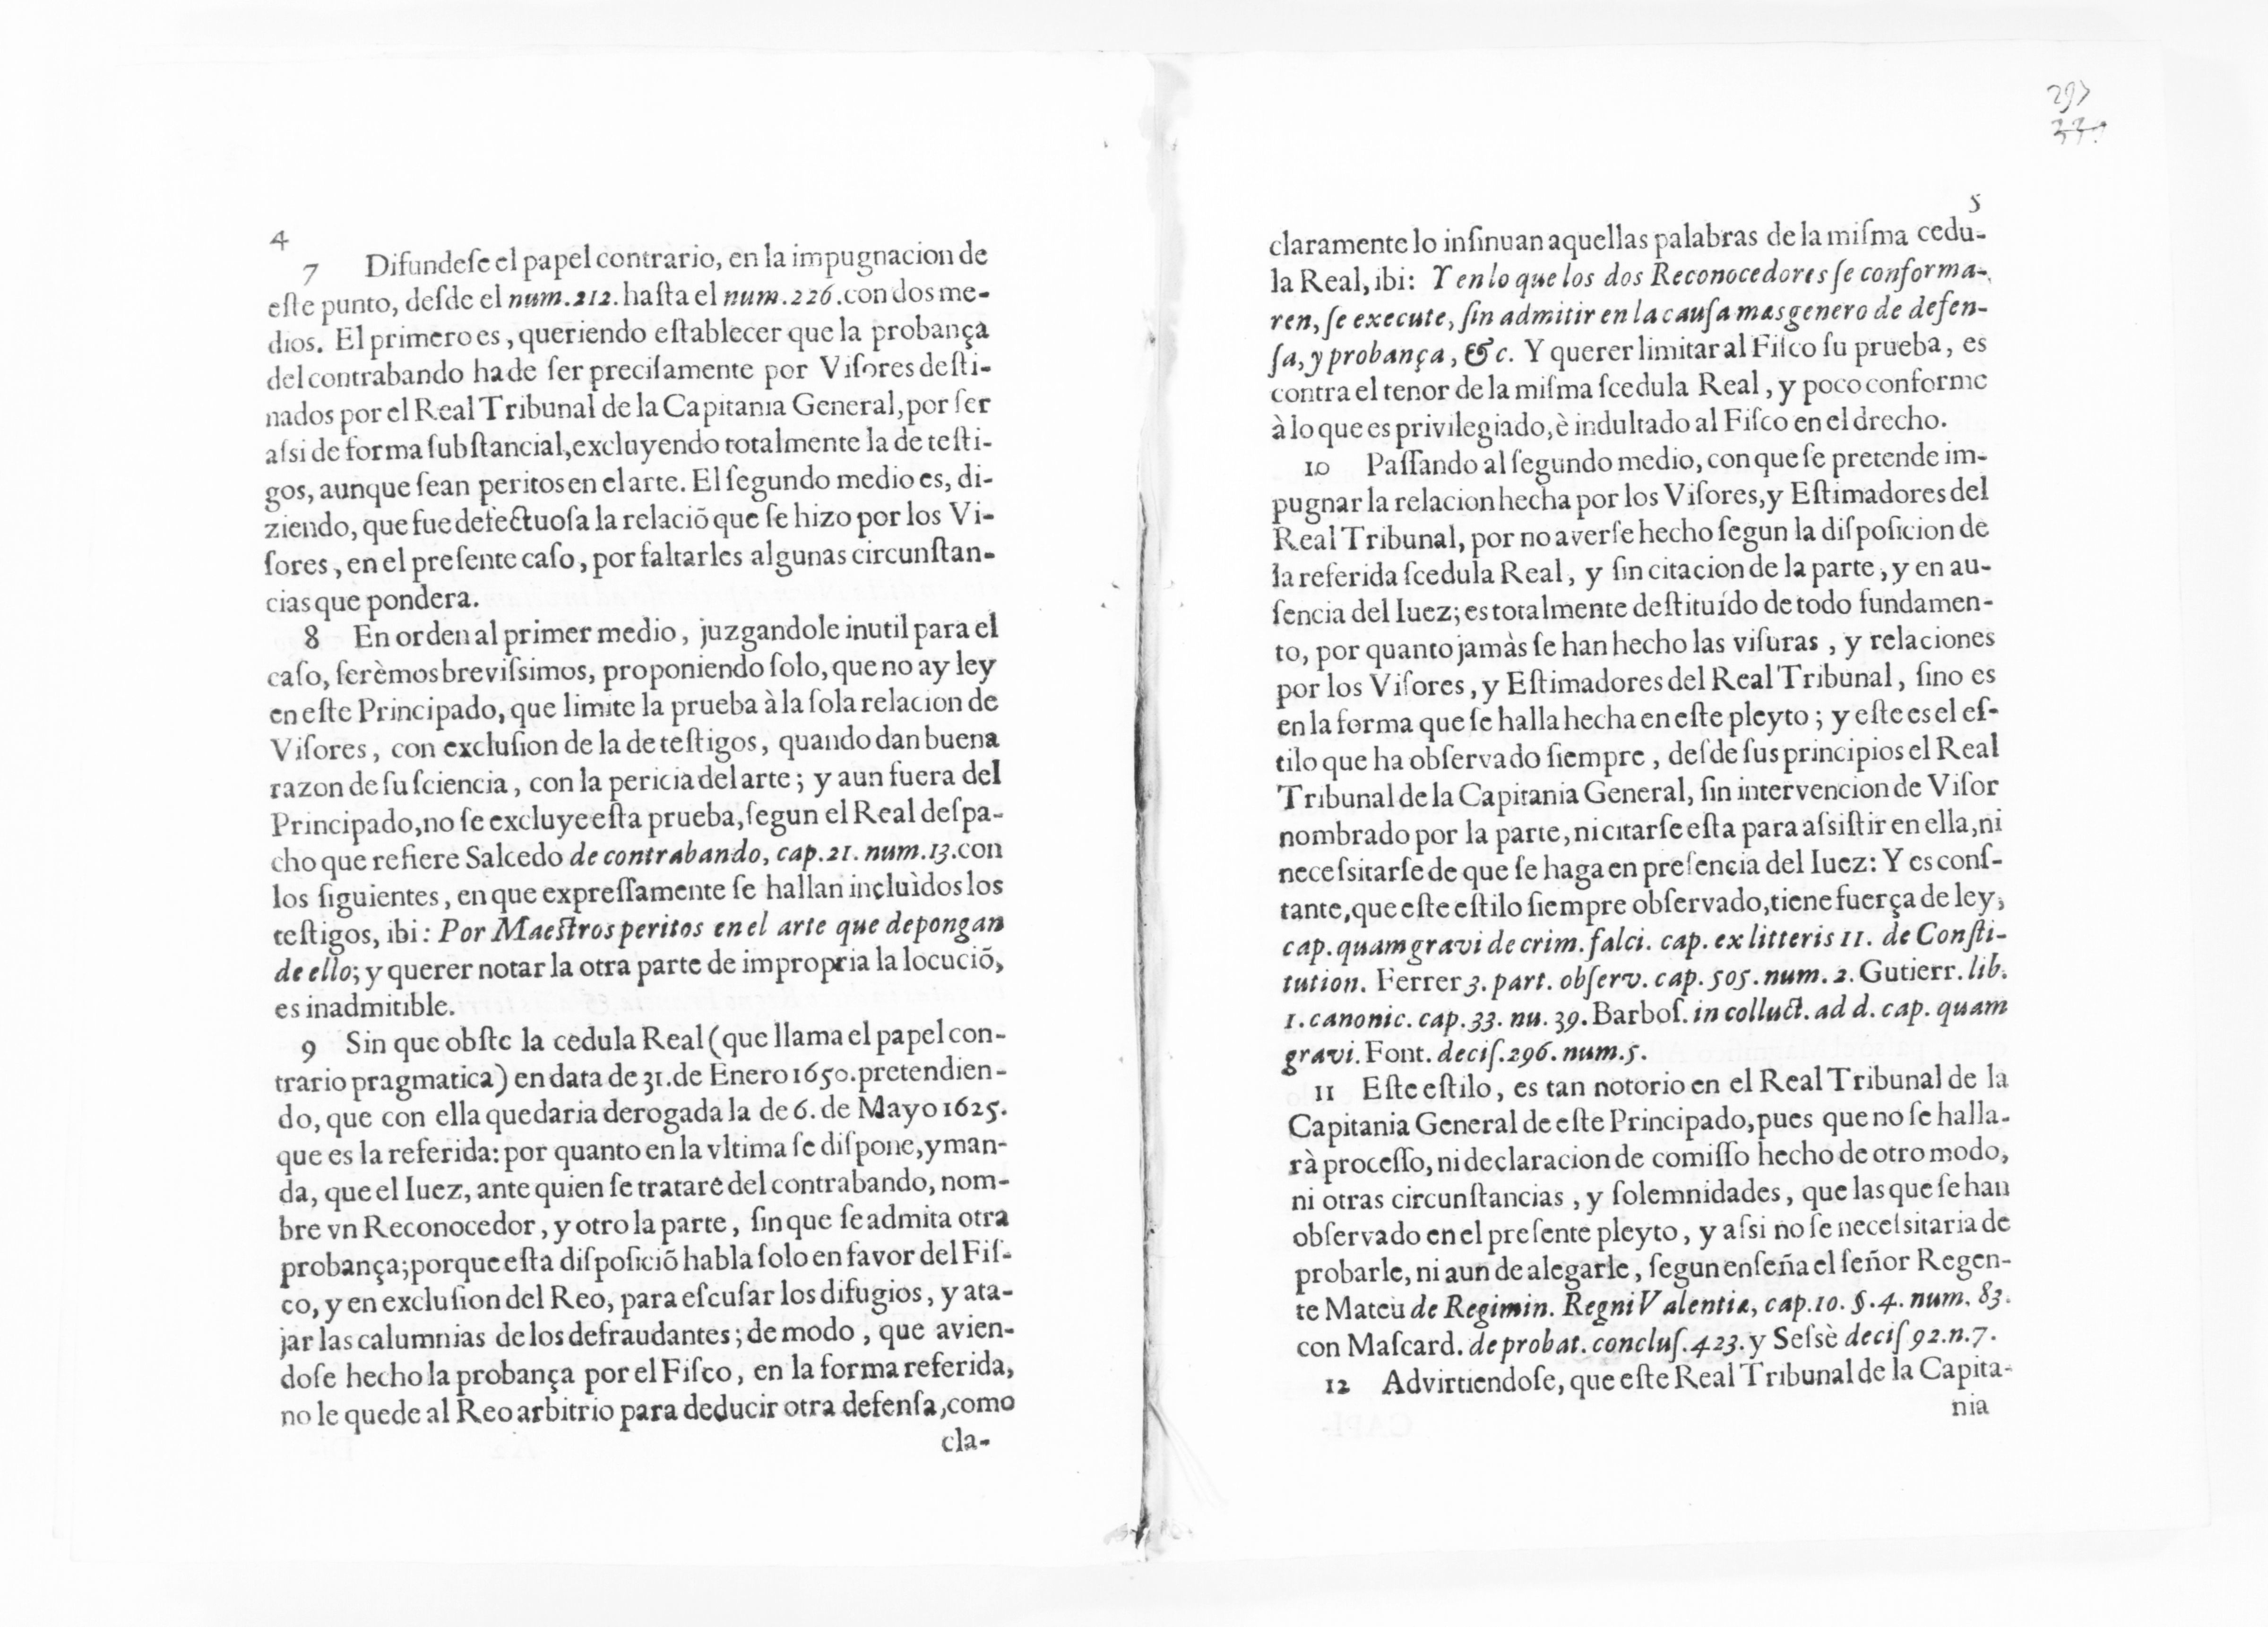 4
7 Difundeſe el papel contrario, en la impugnacion de
eſte punto, deſde el num.212. haſta el num.226.con dos me-
dios. El primero es, queriendo eſtablecer que la probança
del contrabando ha de ſer preciſamente por Viſores deſti-
nados por el Real Tribunal de la Capitania General, por ſer
aſsi de forma ſubſtancial, excluyendo totalmente la de teſti-
gos, aunque ſean peritos en el arte. El ſegundo medio es, di-
ziendo, que fue defectuoſa la relaciõ que ſe hizo por los Vi-
ſores, en el preſente caſo, por faltarles algunas circunſtan-
cias que pondera.
8 En orden al primer medio, juzgandole inutil para el
caſo, ſerèmos breviſsimos, proponiendo ſolo, que no ay ley
en eſte Principado, que limite la prueba à la ſola relacion de
Viſores, con excluſion de la de teſtigos, quando dan buena
razon de ſu ſciencia, con la pericia del arte; y aun fuera del
Principado, no ſe excluye eſta prueba, ſegun el Real deſpa-
cho que refiere Salcedo de contrabando, cap.21. num.13.con
los ſiguientes, en que expreſſamente ſe hallan incluìdos los
teſtigos, ibi: Por Maeſtros peritos en el arte que depongan
de ello; y querer notar la otra parte de impropria la locuciõ,
es inadmitible.
9 Sin que obſte la cedula Real (que llama el papel con-
trario pragmatica) en data de 31.de Enero 1650.pretendien-
do, que con ella quedaria derogada la de 6. de Mayo 1625.
que es la referida: por quanto en la vltima ſe diſpone, y man-
da, que el Iuez, ante quien ſe tratarè del contrabando, nom-
bre vn Reconocedor, y otro la parte, ſin que ſe admita otra
probança; porque eſta diſpoſiciõ habla ſolo en favor del Fiſ-
co, y en excluſion del Reo, para eſcuſar los difugios, y ata-
jar las calumnias de los defraudantes; de modo, que avien-
doſe hecho la probança por el Fiſco, en la forma referida,
no le quede al Reo arbitrio para deducir otra defenſa, como
cla-
297
5
claramente lo inſinuan aquellas palabras de la miſma cedu-
la Real, ibi: Y en lo que los dos Reconocedores ſe conforma-
ren, ſe execute, ſin admitir en la cauſa mas genero de defen-
ſa, y probança, &c. Y querer limitar al Fiſco ſu prueba, es
contra el tenor de la miſma ſcedula Real, y poco conforme
à lo que es privilegiado, è indultado al Fiſco en el drecho.
10 Paſſando al ſegundo medio, con que ſe pretende im-
pugnar la relacion hecha por los Viſores, y Eſtimadores del
Real Tribunal, por no averſe hecho ſegun la diſpoſicion de
la referida ſcedula Real, y ſin citacion de la parte, y en au-
ſencia del Iuez; es totalmente deſtituído de todo fundamen-
to, por quanto jamàs ſe han hecho las viſuras, y relaciones
por los Viſores, y Eſtimadores del Real Tribunal, ſino es
en la forma que ſe halla hecha en eſte pleyto; y eſte es el eſ-
tilo que ha obſervado ſiempre, deſde ſus principios el Real
Tribunal de la Capitania General, ſin intervencion de Viſor
nombrado por la parte, ni citarſe eſta para aſsiſtir en ella, ni
neceſsitarſe de que ſe haga en preſencia del Iuez: Y es conſ-
tante, que eſte eſtilo ſiempre obſervado, tiene fuerça de ley,
cap. quam gravi de crim. falci. cap. ex litteris 11. de Conſti-
tution. Ferrer 3. part. obſerv. cap. 505. num. 2. Gutierr. lib.
1. canonic. cap. 33. nu. 39. Barboſ. in colluct. ad d. cap. quam
gravi. Font. deciſ.296. num.5.
11 Eſte eſtilo, es tan notorio en el Real Tribunal de la
Capitania General de eſte Principado, pues que no ſe halla-
rà proceſſo, ni declaracion de comiſſo hecho de otro modo,
ni otras circunſtancias, y ſolemnidades, que las que ſe han
obſervado en el preſente pleyto, y aſsi no ſe neceſsitaria de
probarle, ni aun de alegarle, ſegun enſeña el ſeñor Regen-
te Mateu de Regimin. Regni Valentiæ, cap.10. §.4. num. 83.
con Maſcard. de probat. concluſ.423. y Seſsè deciſ 92.n.7.
12 Advirtiendoſe, que eſte Real Tribunal de la Capita-
nia